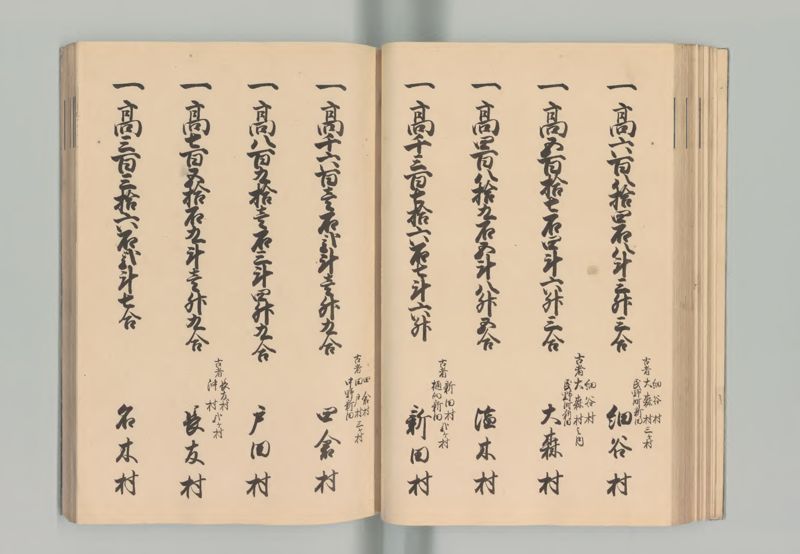 一高六百八拾四石八斗三升三合
古者 細谷村
大森村 三ケ村
武野所新田
細谷村
一高五百拾七石四斗六升三合
古者 細谷村
大森村之内
武野所新田
大森村
一高四百八拾九石五斗八升五合
徳木村
一高千三百七拾六石七斗六升
古者 新田村 弐ケ村
新田
新田村
一高千六百壱石弐斗壱升九合
古者 田倉村
田戸村 三ケ村
中野新田
田倉村
一高八百九拾壱石三斗四升九合
戸田村
一高七百五拾石九斗壱升九合
古者 長友村 弐ケ村
沖村
長友村
一高三百三拾六石弐斗七合
名木村